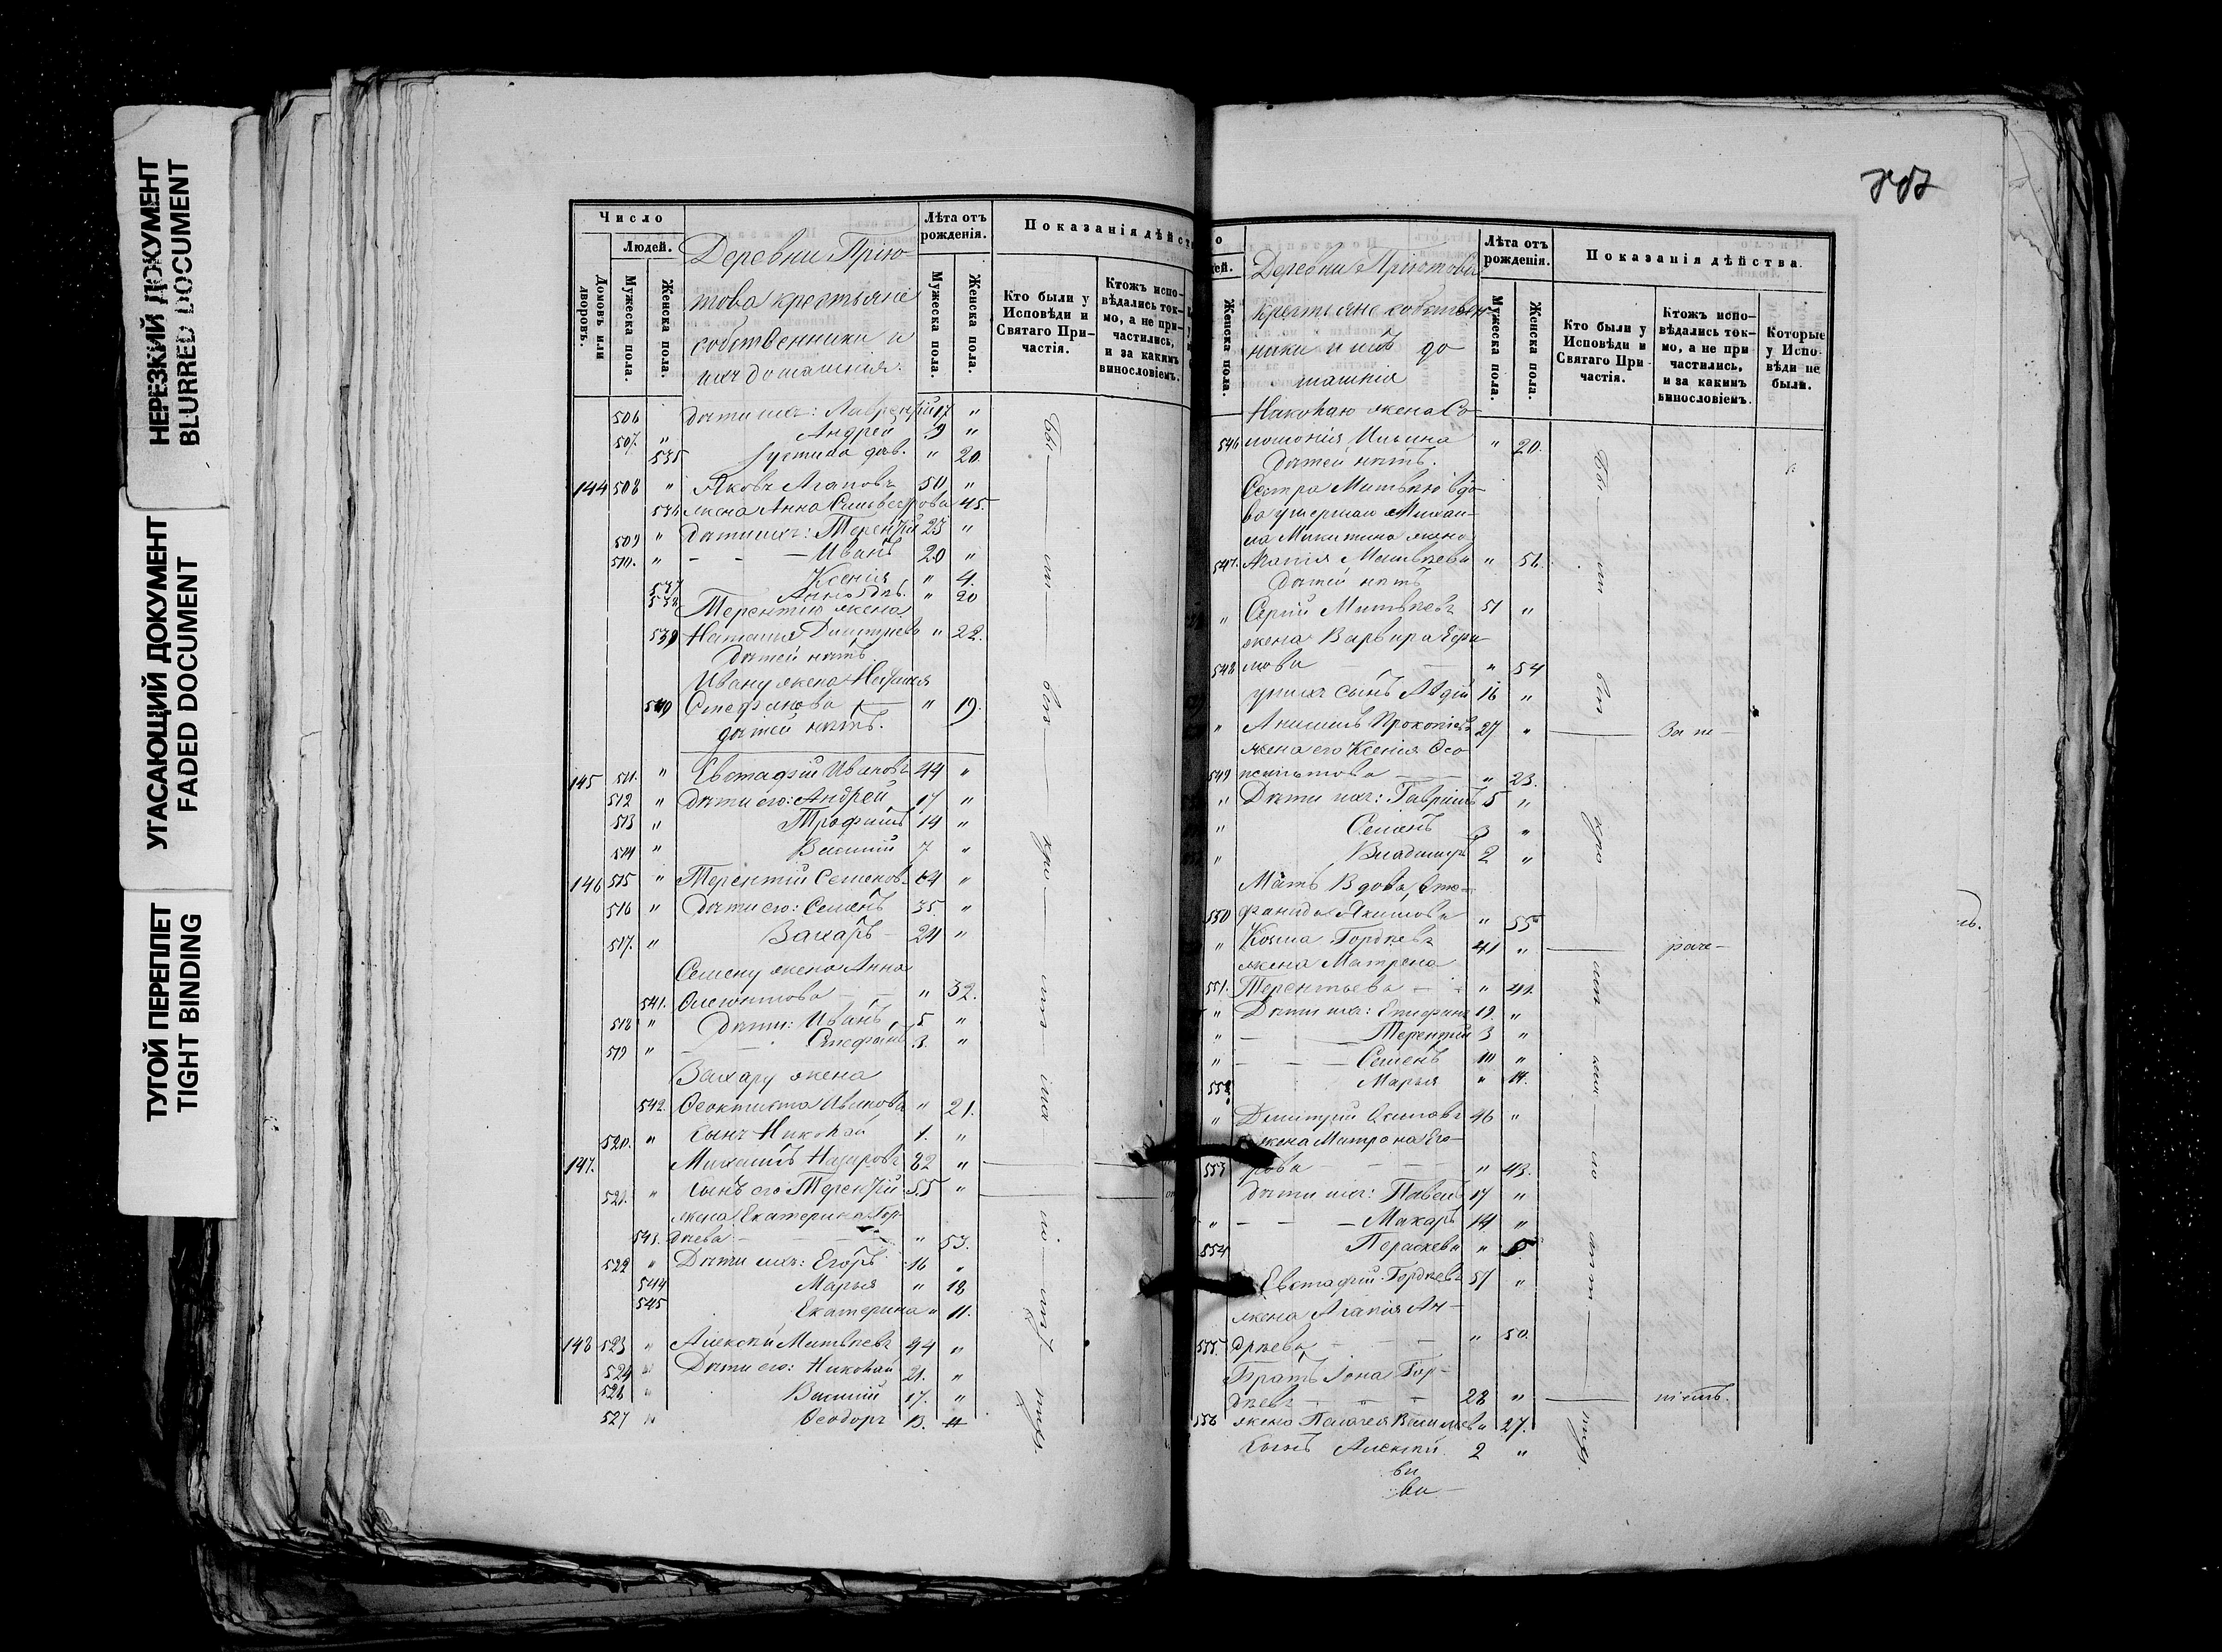 НЕРЕЗКИЙ ДОКУМЕНТ
BLURRED DOCUMENT
УГАСАЮЩИЙ ДОКУМЕНТ
FADED DOCUMENT
ТУГОЙ ПЕРЕПЛЕТ
TIGHT BINDING
Число
Людей.
Домовъ или дворовъ.
Мужеска пола.
Женска пола.
Деревни Прію-
това крестьяне
собственники и
ихъ домашнія.
Лѣта отъ рожденія.
Мужеска пола.
Женска пола.
Показанія дѣйст
Кто были у Исповѣди и Святаго При-частія.
Ктожъ испо-вѣдались ток-мо, а не при-частились, и за какимъ винословіемъ.
506 дѣти ихъ: Лаврентій 17 "
507. " Андрей 9 "
535 Іустина дѣв. " 20
144 508 " Яковъ Агаповъ 50 "
536 жена Анна Сильвестрова 45.
509 " Дѣти ихъ: Терентій 23 "
510. " - - - Иванъ 20 "
537 Ксенія " 4.
538 Анна дѣв. " 20
Терентію жена
539 Наталья Дмитріева " 22.
дѣтей нѣтъ
Ивану жена Наталія
540 Стефанова " 19.
дѣтей нѣтъ.
145 511. " Евстафій Ивановъ 44 "
512 " Дѣти его: Андрей 17 "
513 " Трофимъ 14 "
514 " Василий 7 "
146 515 " Терентій Семеновъ 64 "
516 " Дѣти его: Семенъ 35. "
517. " Захаръ - 24 "
Семену жена Анна
541. - - " 32.
518 " Дѣти: Иванъ 5 "
519 " - - Стефанъ 3. "
Захару жена
542. Феоктиста Иванова " 21.
520. " сынъ Николай 1. "
147. Михаилъ Назаровъ 82 "
521. " сынъ его Терентій 55 "
жена Екатерина Гор-
543. дѣева - - - " 53.
522 " Дѣти ихъ: Егоръ 16 "
544 Марья " 18
545 Екатерина " 11.
148 523 " Алексѣй Матвѣевъ 44 "
524 " Дѣти его: Николай 21. "
526 " Василій 17. "
527 " Феодоръ 13. "
Женска пола.
Деревни Пріютова
крестьяне собствен
ники и ихъ до
машнія
Лѣта отъ рожденія.
Мужеска пола.
Женска пола.
Показанія дѣйства.
Кто были у Исповѣди и Святаго При частія.
Ктожъ испо-вѣдались ток-мо, а не при частились, и за какимъ винословіемъ.
Которые у Испо-вѣди не были.
Николаю жена Со-
546 ломонія Ильина " 20.
Дѣтей нѣтъ.
Сестра Матвѣю вдо-
ва умершаго Михаи-
ла Никитина жена
547. Агапія Матвѣева " 56.
Дѣтей нѣтъ
" Сергій Матвѣевъ 51 "
жена Варвара Ефи
548 мова - - " 54
у нихъ сынъ Авдій 16 "
" Анисимъ Прокопіевъ 27 " За не-
жена его Ксенія
549 - - " 23.
" Дѣти ихъ: Гавріилъ 5 "
" Семенъ 3 "
" Владиміръ 2 "
Мать вдова Сте-
550 фанида Якимова " 55
" Козма Гордѣевъ 41 " раче-
жена Матрена
551. Терентьева - - " 41.
" Дѣти ихъ: Епифанъ 19. "
" - - - Терентій 3 "
" - - - Семенъ 10 "
552 Марья " 14.
" Димитрій Осиповъ 46 "
жена Матрона Его-
553 рова - - - " 43.
дѣти ихъ: Павелъ 17 "
" - - - Макаръ 14 "
554 Параскева " 5.
Евстафій Гордѣевъ 57 "
жена Агапія Ан-
555. дрѣева - - - " 50.
Братъ Іона Гор-
дѣевъ - - - 28 " ніемъ.
556 жена Пелагея Васильева 27.
сынъ Алексѣй 2 "